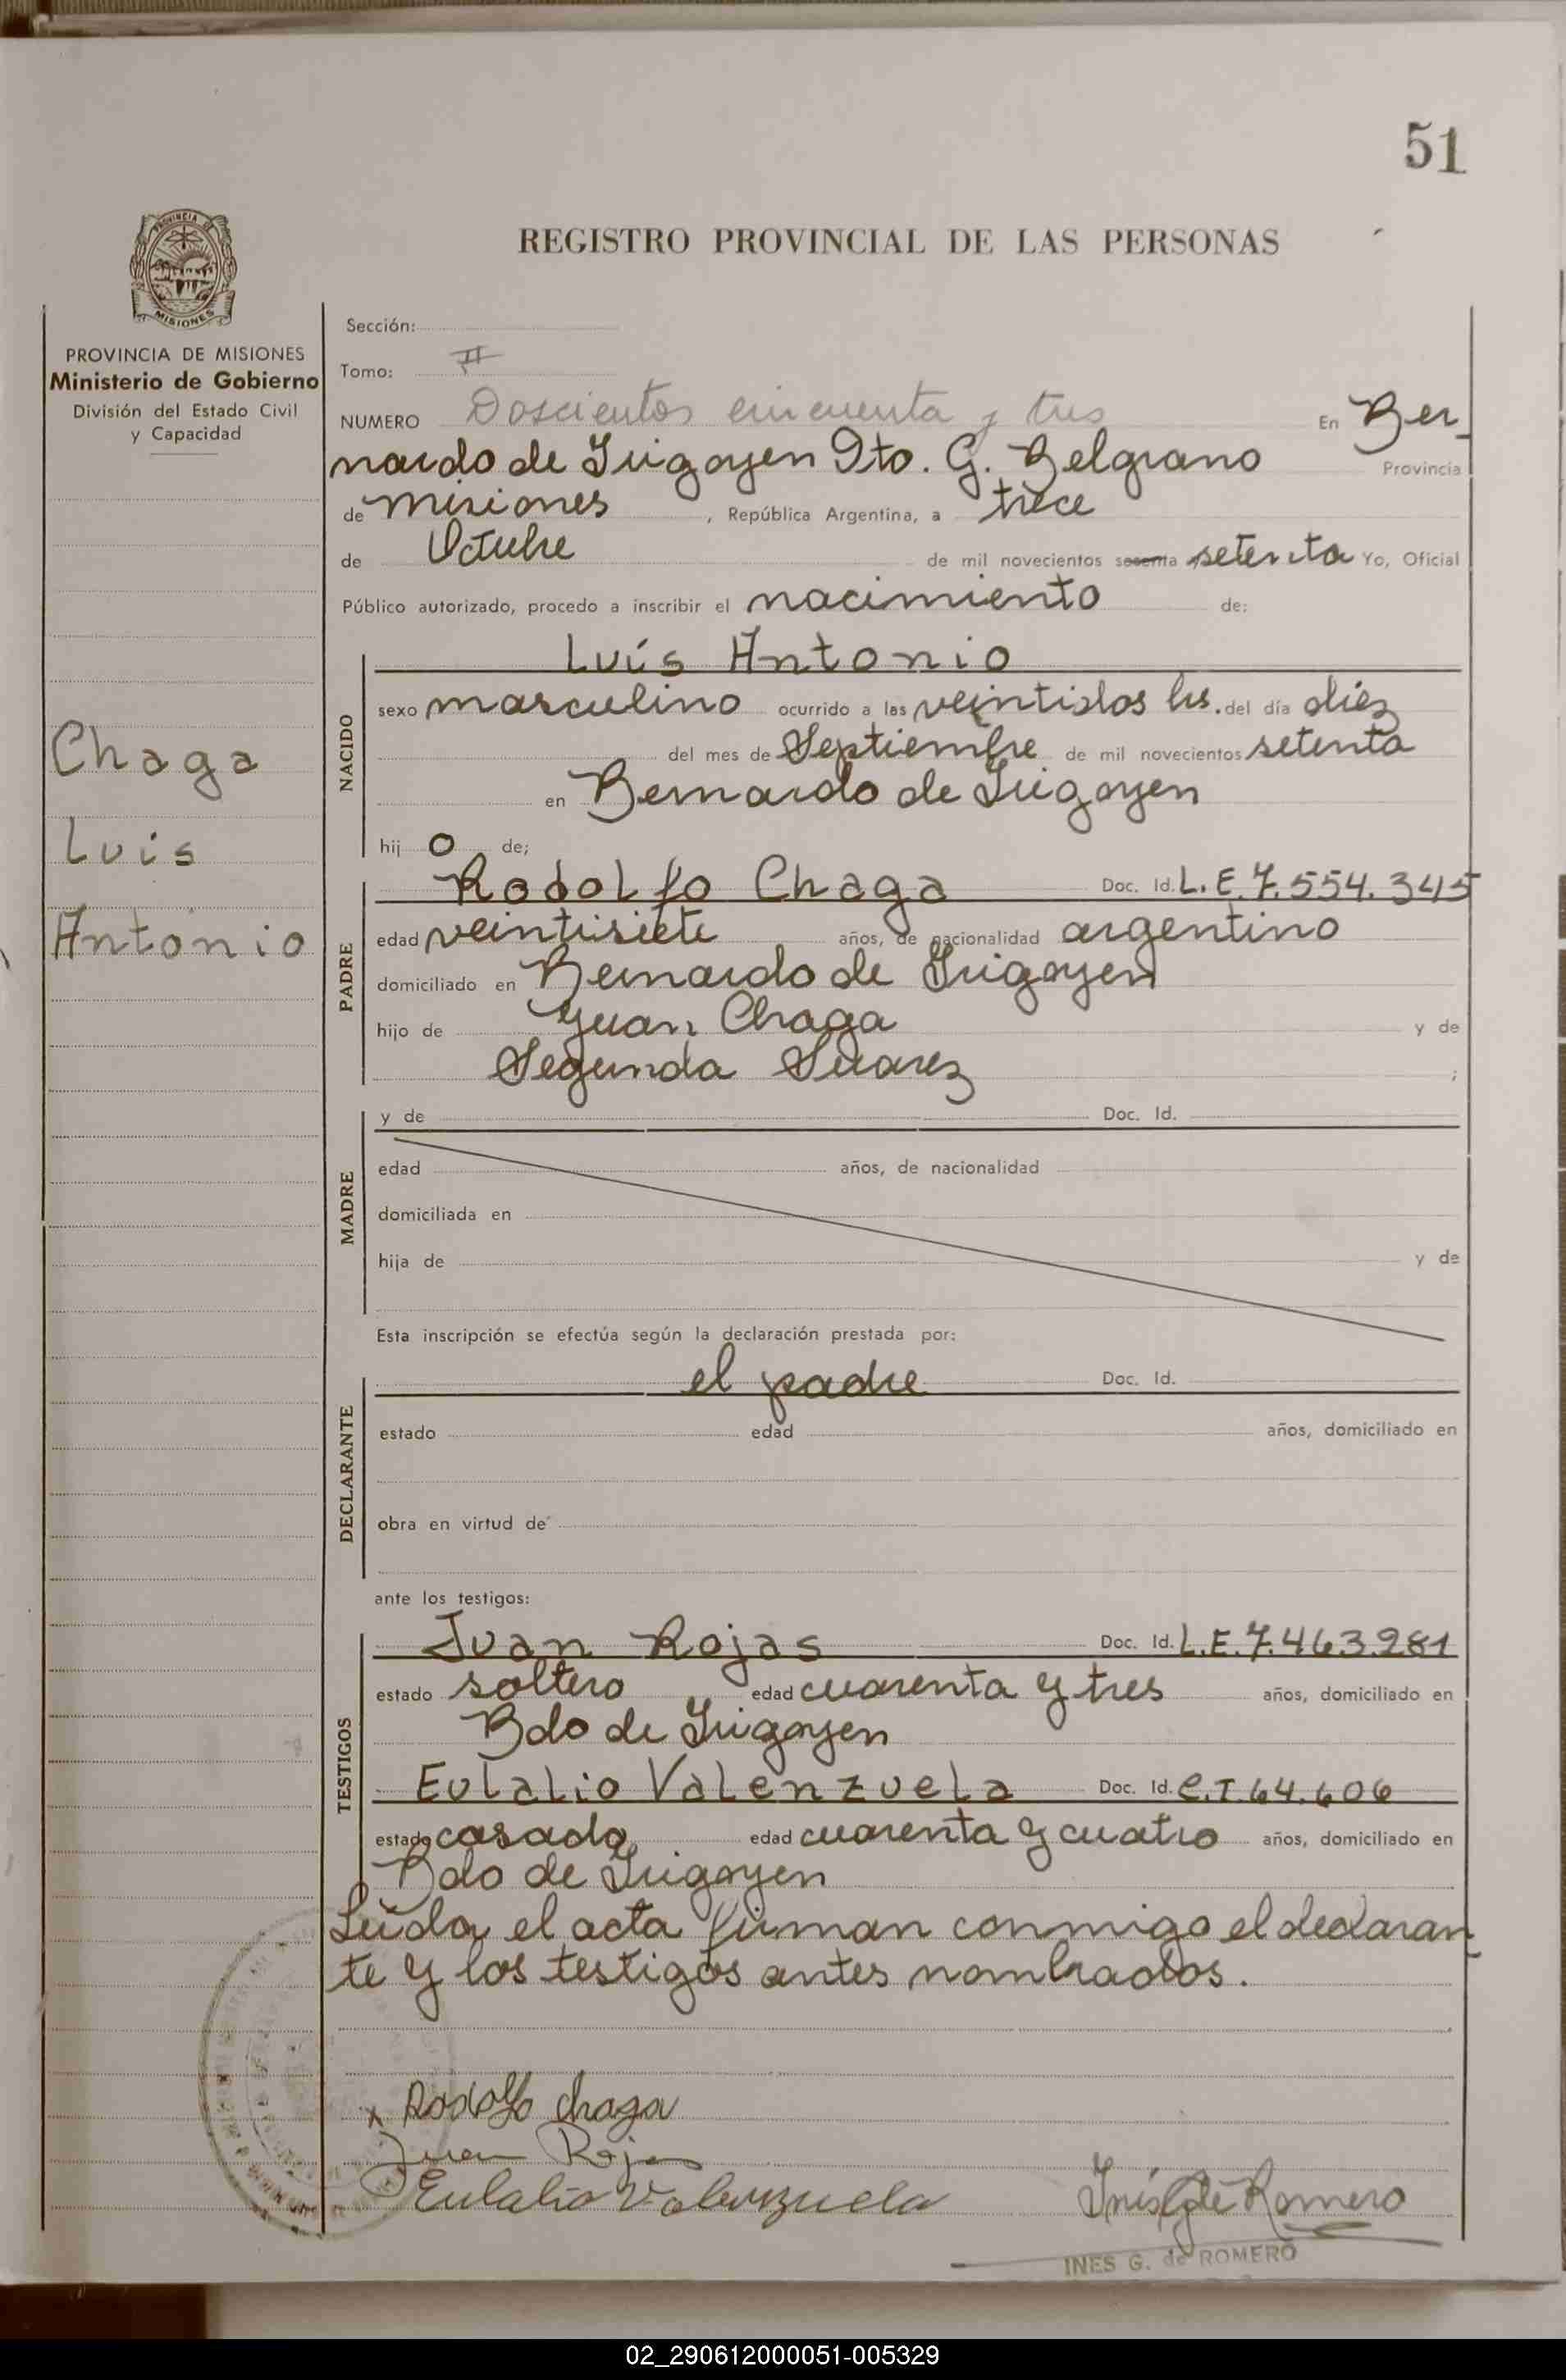 51
REGISTRO PROVINCIAL DE LAS PERSONAS
PROVINCIA DE MISIONES
Ministerio de Gobierno
División del Estado Civil
y Capacidad
Chaga
Luis
Antonio
Sección:
Tomo: II
NUMERO Doscientos cincuenta y tres En Ber_
nardo de Irigoyen Dto. G. Belgrano Provincia
de Misiones, República Argentina, a trece
de Octubre de mil novecientos sesenta setenta Yo, Oficial
Público autorizado, procedo a inscribir el nacimiento de:
NACIDO
Luís Antonio
sexo masculino ocurrido a las veintidos hs. del día diez
del mes de Septiembre de mil novecientos setenta
en Bernardo de Irigoyen
hij o de;
PADRE
Rodolfo Chaga Doc. Id. L.E.7.554.345
edad veintisiete años, de nacionalidad argentino
domiciliado en Bernardo de Irigoyen
hijo de Juan Chaga y de
Segunda Suarez ;
MADRE
y de Doc. Id.
edad años, de nacionalidad
domiciliada en
hija de y de
Esta inscripción se efectúa según la declaración prestada por:
DECLARANTE
el padre Doc. Id.
estado edad años, domiciliado en
obra en virtud de
ante los testigos:
TESTIGOS
Juan Rojas Doc. Id. L.E.7.463.281
estado soltero edad cuarenta y tres años, domiciliado en
Bdo de Irigoyen
Eulalio Valenzuela Doc. Id. C.I.64.606
estado casado edad cuarenta y cuatro años, domiciliado en
Bdo de Irigoyen
Leída el acta firman conmigo el declaran_
te y los testigos antes nombrados.
x Rodolfo Chaga
Juan Rojas
Eulalio Valenzuela
Inés G de Romero
INES G. de ROMERO
02_290612000051-005329